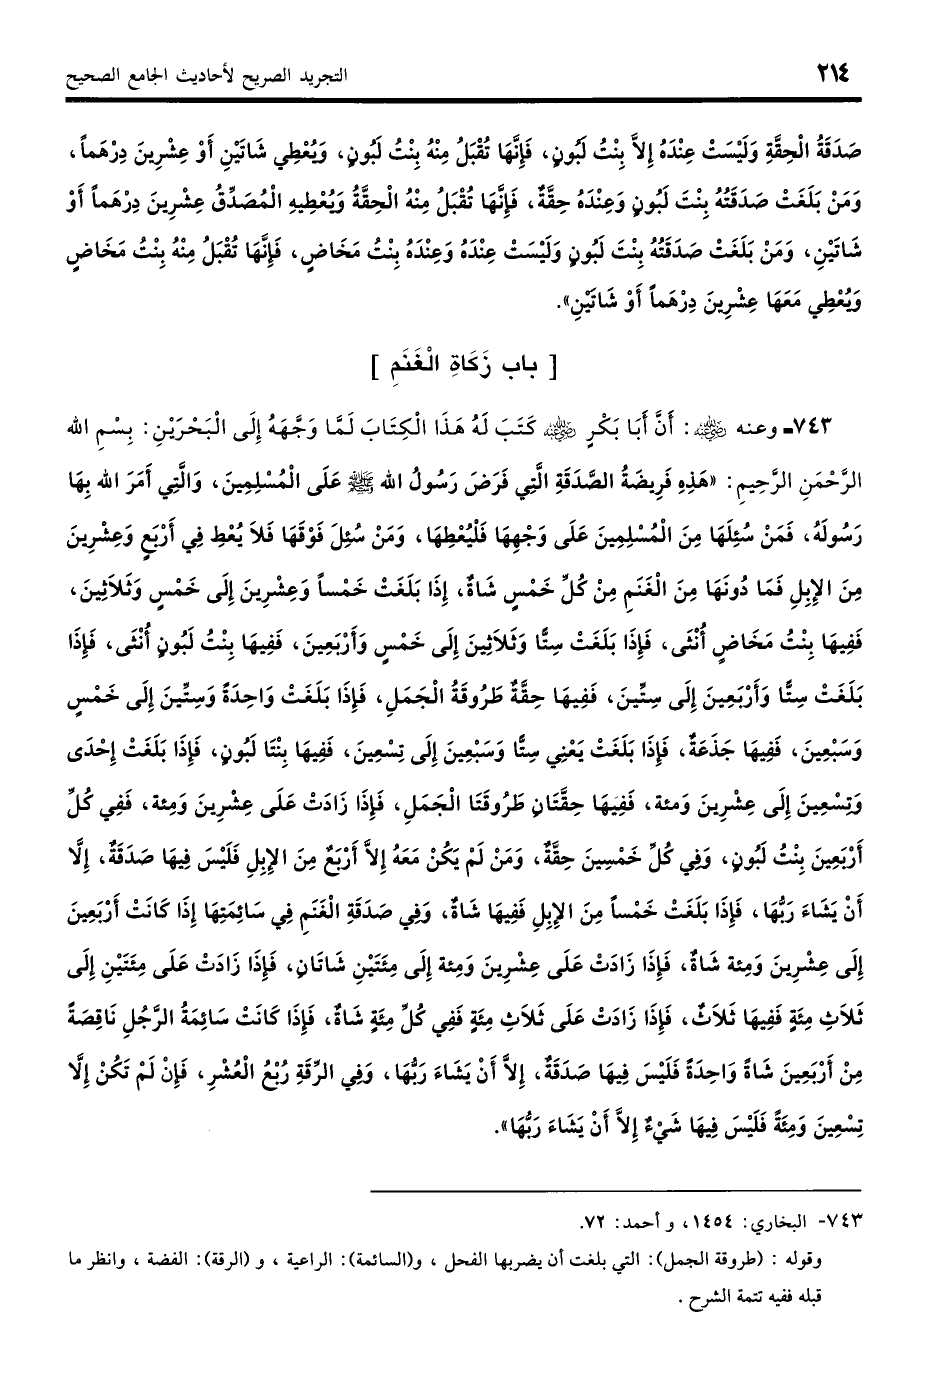 ٢١٤ التجريد الصريح لأحاديث الجامع الصحيح
صَدَقَةُ الْحِقَّةِ وَلَيْسَتْ عِنْدَهُ إِلاَّ بِنْتُ لَبُونٍ، فَإِنَّهَا تُقْبَلُ مِنْهُ بِنْتُ لَبُونٍ، وَيُعْطِي شَاتَيْنِ أَوْ عِشْرِينَ دِرْهَماً،
وَمَنْ بَلَغَتْ صَدَقَتُهُ بِنْتَ لَبُونٍ وَعِنْدَهُ حِقَّةٌ، فَإِنَّهَا تُقْبَلُ مِنْهُ الْحِقَّةُ وَيُعْطِيهِ الْمُصَدِّقُ عِشْرِينَ دِرْهَماً أَوْ
شَاتَيْنِ، وَمَنْ بَلَغَتْ صَدَقَتُهُ بِنْتَ لَبُونٍ وَلَيْسَتْ عِنْدَهُ وَعِنْدَهُ بِنْتُ مَخَاضٍ، فَإِنَّهَا تُقْبَلُ مِنْهُ بِنْتُ مَخَاضٍ
وَيُعْطِي مَعَهَا عِشْرِينَ دِرْهَماً أَوْ شَاتَيْنِ».
[ باب زَكَاةِ الْغَنَمِ ]
٧٤٣ـ وعنه ﵁: أَنَّ أَبَا بَكْرٍ ﵁ كَتَبَ لَهُ هَذَا الْكِتَابَ لَمَّا وَجَّهَهُ إِلَى الْبَحْرَيْنِ: بِسْمِ الله
الرَّحْمَنِ الرَّحِيمِ: «هَذِهِ فَرِيضَةُ الصَّدَقَةِ الَّتِي فَرَضَ رَسُولُ الله ﷺ عَلَى الْمُسْلِمِينَ، وَالَّتِي أَمَرَ الله بِهَا
رَسُولَهُ، فَمَنْ سُئِلَهَا مِنَ الْمُسْلِمِينَ عَلَى وَجْهِهَا فَلْيُعْطِهَا، وَمَنْ سُئِلَ فَوْقَهَا فَلاَ يُعْطِ فِي أَرْبَعٍ وَعِشْرِينَ
مِنَ الإِبِلِ فَمَا دُونَهَا مِنَ الْغَنَمِ مِنْ كُلِّ خَمْسٍ شَاةٌ، إِذَا بَلَغَتْ خَمْساً وَعِشْرِينَ إِلَى خَمْسٍ وَثَلاَثِينَ،
فَفِيهَا بِنْتُ مَخَاضٍ أُنْثَى، فَإِذَا بَلَغَتْ سِتًّا وَثَلاَثِينَ إِلَى خَمْسٍ وَأَرْبَعِينَ، فَفِيهَا بِنْتُ لَبُونٍ أُنْثَى، فَإِذَا
بَلَغَتْ سِتًّا وَأَرْبَعِينَ إِلَى سِتِّينَ، فَفِيهَا حِقَّةٌ طَرُوقَةُ الْجَمَلِ، فَإِذَا بَلَغَتْ وَاحِدَةً وَسِتِّينَ إِلَى خَمْسٍ
وَسَبْعِينَ، فَفِيهَا جَذَعَةٌ، فَإِذَا بَلَغَتْ يَعْنِي سِتًّا وَسَبْعِينَ إِلَى تِسْعِينَ، فَفِيهَا بِنْتَا لَبُونٍ، فَإِذَا بَلَغَتْ إِحْدَى
وَتِسْعِينَ إِلَى عِشْرِينَ وَمئة، فَفِيهَا حِقَّتَانِ طَرُوقَتَا الْجَمَلِ، فَإِذَا زَادَتْ عَلَى عِشْرِينَ وَمِئة، فَفِي كُلِّ
أَرْبَعِينَ بِنْتُ لَبُونٍ، وَفِي كُلِّ خَمْسِينَ حِقَّةٌ، وَمَنْ لَمْ يَكُنْ مَعَهُ إِلاَّ أَرْبَعٌ مِنَ الإِبِلِ فَلَيْسَ فِيهَا صَدَقَةٌ، إِلَّا
أَنْ يَشَاءَ رَبُّهَا، فَإِذَا بَلَغَتْ خَمْساً مِنَ الإِبِلِ فَفِيهَا شَاةٌ، وَفِي صَدَقَةِ الْغَنَمِ فِي سَائِمَتِهَا إِذَا كَانَتْ أَرْبَعِينَ
إِلَى عِشْرِينَ وَمِئة شَاةٌ، فَإِذَا زَادَتْ عَلَى عِشْرِينَ وَمِئة إِلَى مِئَتَيْنِ شَاتَانِ، فَإِذَا زَادَتْ عَلَى مِئَتَيْنِ إِلَى
ثَلاَثِ مِئَةٍ فَفِيهَا ثَلاَثٌ، فَإِذَا زَادَتْ عَلَى ثَلاَثِ مِئَةٍ فَفِي كُلِّ مِئَةٍ شَاةٌ، فَإِذَا كَانَتْ سَائِمَةُ الرَّجُلِ نَاقِصَةً
مِنْ أَرْبَعِينَ شَاةً وَاحِدَةً فَلَيْسَ فِيهَا صَدَقَةٌ، إِلاَّ أَنْ يَشَاءَ رَبُّهَا، وَفِي الرِّقَةِ رُبْعُ الْعُشْرِ، فَإِنْ لَمْ تَكُنْ إِلَّا
تِسْعِينَ وَمِئَةً فَلَيْسَ فِيهَا شَيْءٌ إِلاَّ أَنْ يَشَاءَ رَبُّهَا».
٧٤٣- البخاري: ١٤٥٤، و أحمد: ٧٢.
وقوله : (طروقة الجمل): التي بلغت أن يضربها الفحل ، و(السائمة): الراعية ، و (الرقة): الفضة ، وانظر ما
قبله ففيه تتمة الشرح .